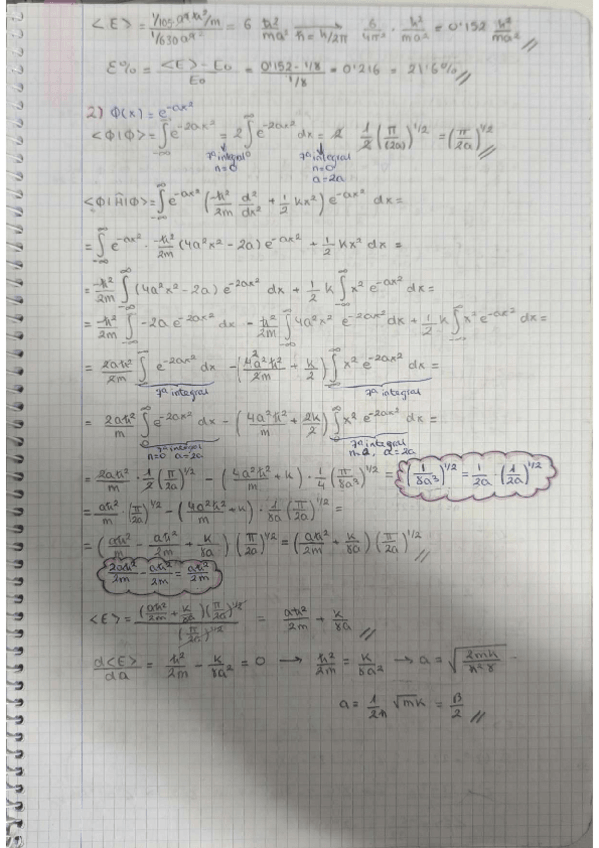 <E> = (1/105 a⁷ ħ²/m) / (1/630 a⁹) = 6 ħ²/ma² → ħ = h/2π 6/4π² · h²/ma² = 0'152 h²/ma² //
ε% = (<E> - E₀)/E₀ = (0'152 - 1/8)/(1/8) = 0'216 = 21'6% //
2) Φ(x) = e^(-ax²)
<Φ|Φ> = ∫_{-∞}^{∞} e^(-2ax²) = 2∫_0^∞ e^(-2ax²) dx = 2 1/2 (π/(2a))^(1/2) = (π/2a)^(1/2) //
7ª integral 7ª integral
n=0 n=0
a=2a
<Φ|Ĥ|Φ> = ∫_{-∞}^{∞} e^(-ax²) (-ħ²/2m d²/dx² + 1/2 kx²) e^(-ax²) dx =
= ∫_{-∞}^{∞} e^(-ax²) · -ħ²/2m (4a²x² - 2a) e^(-ax²) + 1/2 kx² dx =
= -ħ²/2m ∫_{-∞}^{∞} (4a²x² - 2a) e^(-2ax²) dx + 1/2 k ∫_{-∞}^{∞} x² e^(-ax²) dx =
= -ħ²/2m ∫_{-∞}^{∞} -2a e^(-2ax²) dx - ħ²/2m ∫_{-∞}^{∞} 4a²x² e^(-2ax²) dx + 1/2 k ∫_{-∞}^{∞} x² e^(-ax²) dx =
= 2aħ²/2m ∫_{-∞}^{∞} e^(-2ax²) dx - (4a²ħ²/2m + k/2) ∫_{-∞}^{∞} x² e^(-2ax²) dx =
7ª integral 7ª integral
= 2aħ²/m ∫_0^∞ e^(-2ax²) dx - (4a²ħ²/m + 2k/2) ∫_0^∞ x² e^(-2ax²) dx =
7ª integral 7ª integral
n=0 a=2a a=2a
= 2aħ²/m · 1/2 (π/2a)^(1/2) - (4a²ħ²/m + k) · 1/4 (π/8a³)^(1/2) = (1/8a³)^(1/2) = 1/2a · (1/2a)^(1/2)
= aħ²/m · (π/2a)^(1/2) - (4a²ħ²/m + k) · 1/8a (π/2a)^(1/2) =
= (aħ²/m - aħ²/2m + k/8a) (π/2a)^(1/2) = (aħ²/2m + k/8a) (π/2a)^(1/2) //
2aħ²/2m - aħ²/2m = aħ²/2m
<E> = (aħ²/2m + k/8a)(π/2a)^(1/2) / (π/2a)^(1/2) = aħ²/2m + k/8a //
d<E>/da = ħ²/2m - k/8a² = 0 → ħ²/2m = k/8a² → a = √(2mk/ħ²8)
a = 1/2ħ √mk = β/2 //